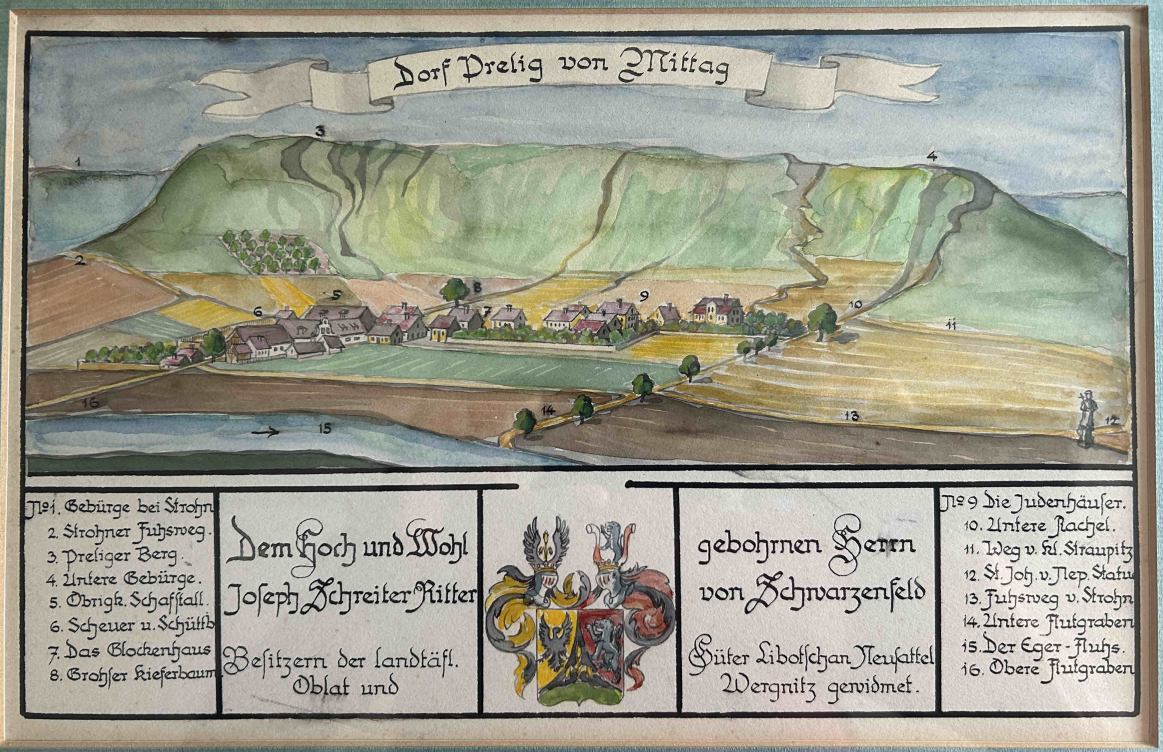 Dorf Prelig von Mittag
1
3
4
2
8
5
9
6
7
10
11
16
14
13
12
15
No1. Gebürge bei Strohn
2. Strohner Fuhsweg.
3. Preliger Berg.
4. Untere Gebürge.
5. Obrigk. Schafstall.
6. Scheuer u. Schüttb
7. Das Glockenhaus
8. Grohser Kieferbaum
Dem Hoch und Wohl
Joseph Schreiter Ritter
Besitzern der landtäfl.
Oblat und
gebohrnen Herrn
von Schwarzenfeld
Güter Libotschan Neusattel
Wergnitz gewidmet.
No 9 Die Judenhäuser.
10. Untere Rachel.
11. Weg v. kl. Straupitz
12. St. Joh. v. Nep. Statu
13. Fuhsweg v. Strohn
14. Untere Flutgraben
15. Der Eger-Fluhs.
16. Obere Flutgraben